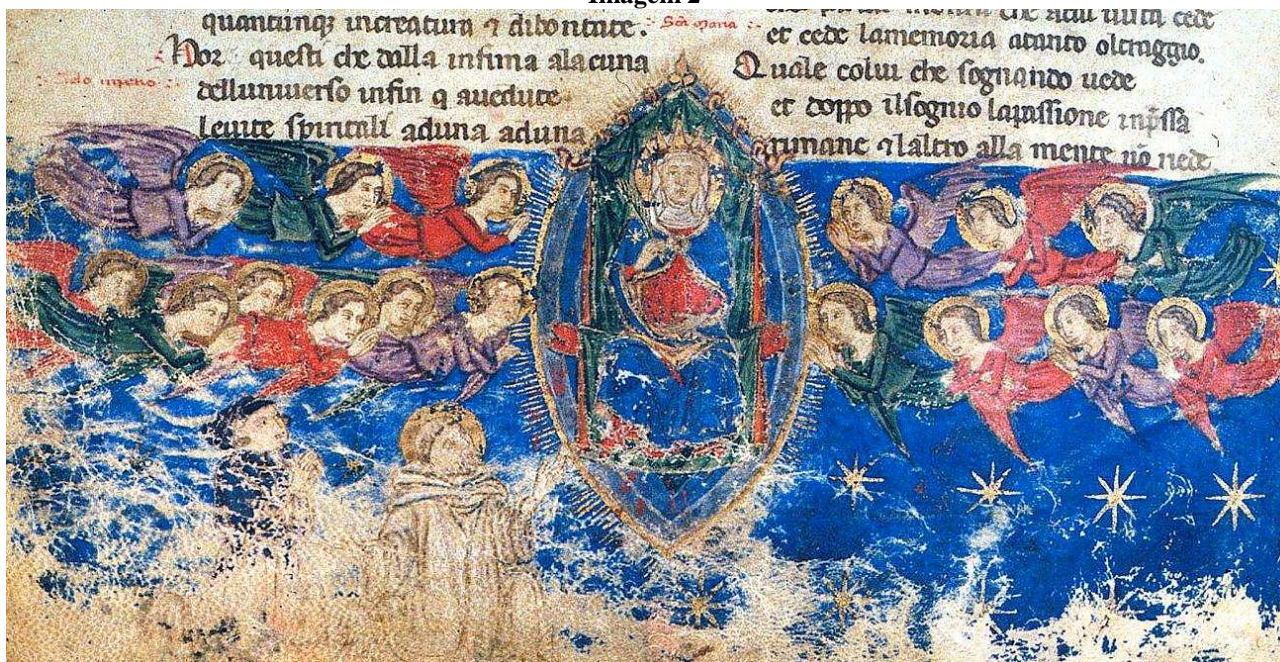 Imagem 2
quantunqʒ increatura ⁊ dibontate.
Hor questi che dalla infima alacuna
delluniuerso infin q auedute
leuite spiritali aduna aduna
uista cede
et cede lamemoria atanto oltraggio.
Quale colui che sognando uede
et doppo ilsognio lapassione inp̄ssa
rimane ⁊laltro alla mente nō riede